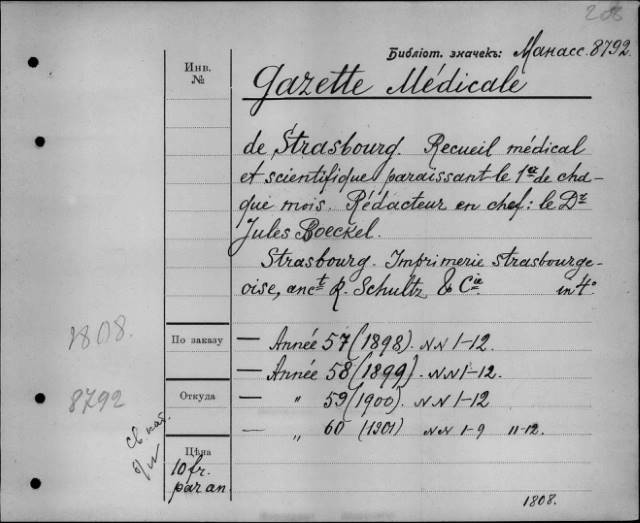 208
Библіот. значекъ: Манасс. 8792.
Инв.
№
Gazette Médicale
de Strasbourg. Recueil médical
et scientifique paraissant le 1er de cha-
que mois. Rédacteur en chef: le Dr
Jules Boeckel.
Strasbourg. Imprimerie strasbourge-
oise, anct R. Schultz & Cie in 4°
1808.
По заказу
— Année 57 (1898). NN 1-12.
— Année 58 (1899). NN 1-12.
8792
Откуда
— " 59 (1900). NN 1-12
— " 60 (1901) NN 1-9 11-12.
Цѣна
10 fr.
par an.
1808.